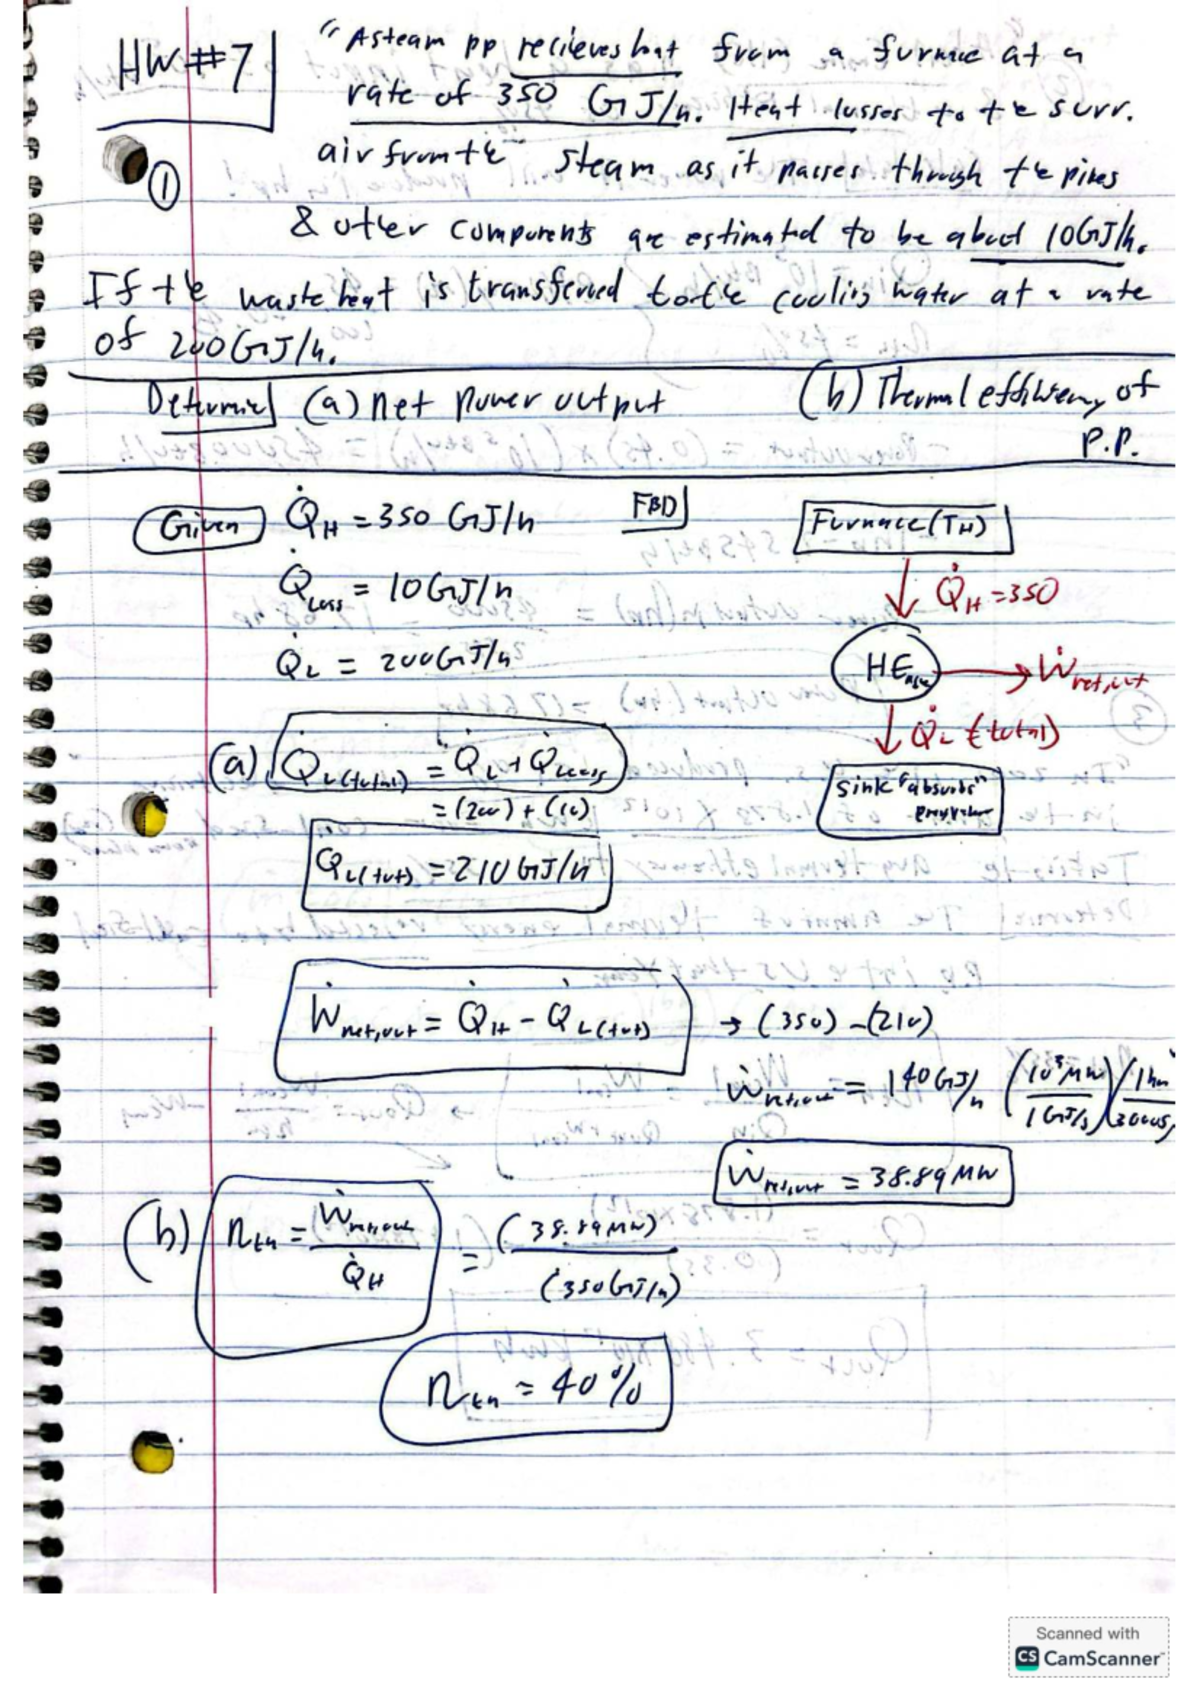 HW#7
"A steam pp recieves heat from a furnace at a
rate of 350 GJ/h. Heat losses to the surr.
① air from the steam as it passes through the pipes
& other components are estimated to be about 10GJ/h.
If the waste heat is transferred to the cooling water at a rate
of 200GJ/h.
Determine (a) net power output (b) Thermal efficiency of
P.P.
Given Q̇H = 350 GJ/h
Q̇Loss = 10GJ/h
Q̇L = 200GJ/h
FBD
Furnace (TH)
Q̇H = 350
HE
Ẇnet,out
Q̇L (total)
Sink "absorbs"
(a) Q̇L(total) = Q̇L + Q̇Loss
= (200) + (10)
Q̇L(tot) = 210 GJ/h
Ẇnet,out = Q̇H - Q̇L(tot) → (350) - (210)
Ẇnet,out = 140GJ/h (10³MW/1GJ/s)(1hr/3600s)
Ẇnet,out = 38.89 MW
(b) nth = Ẇnet,out/Q̇H = (38.89MW)/(350GJ/h)
nth = 40%
Scanned with
CS CamScanner